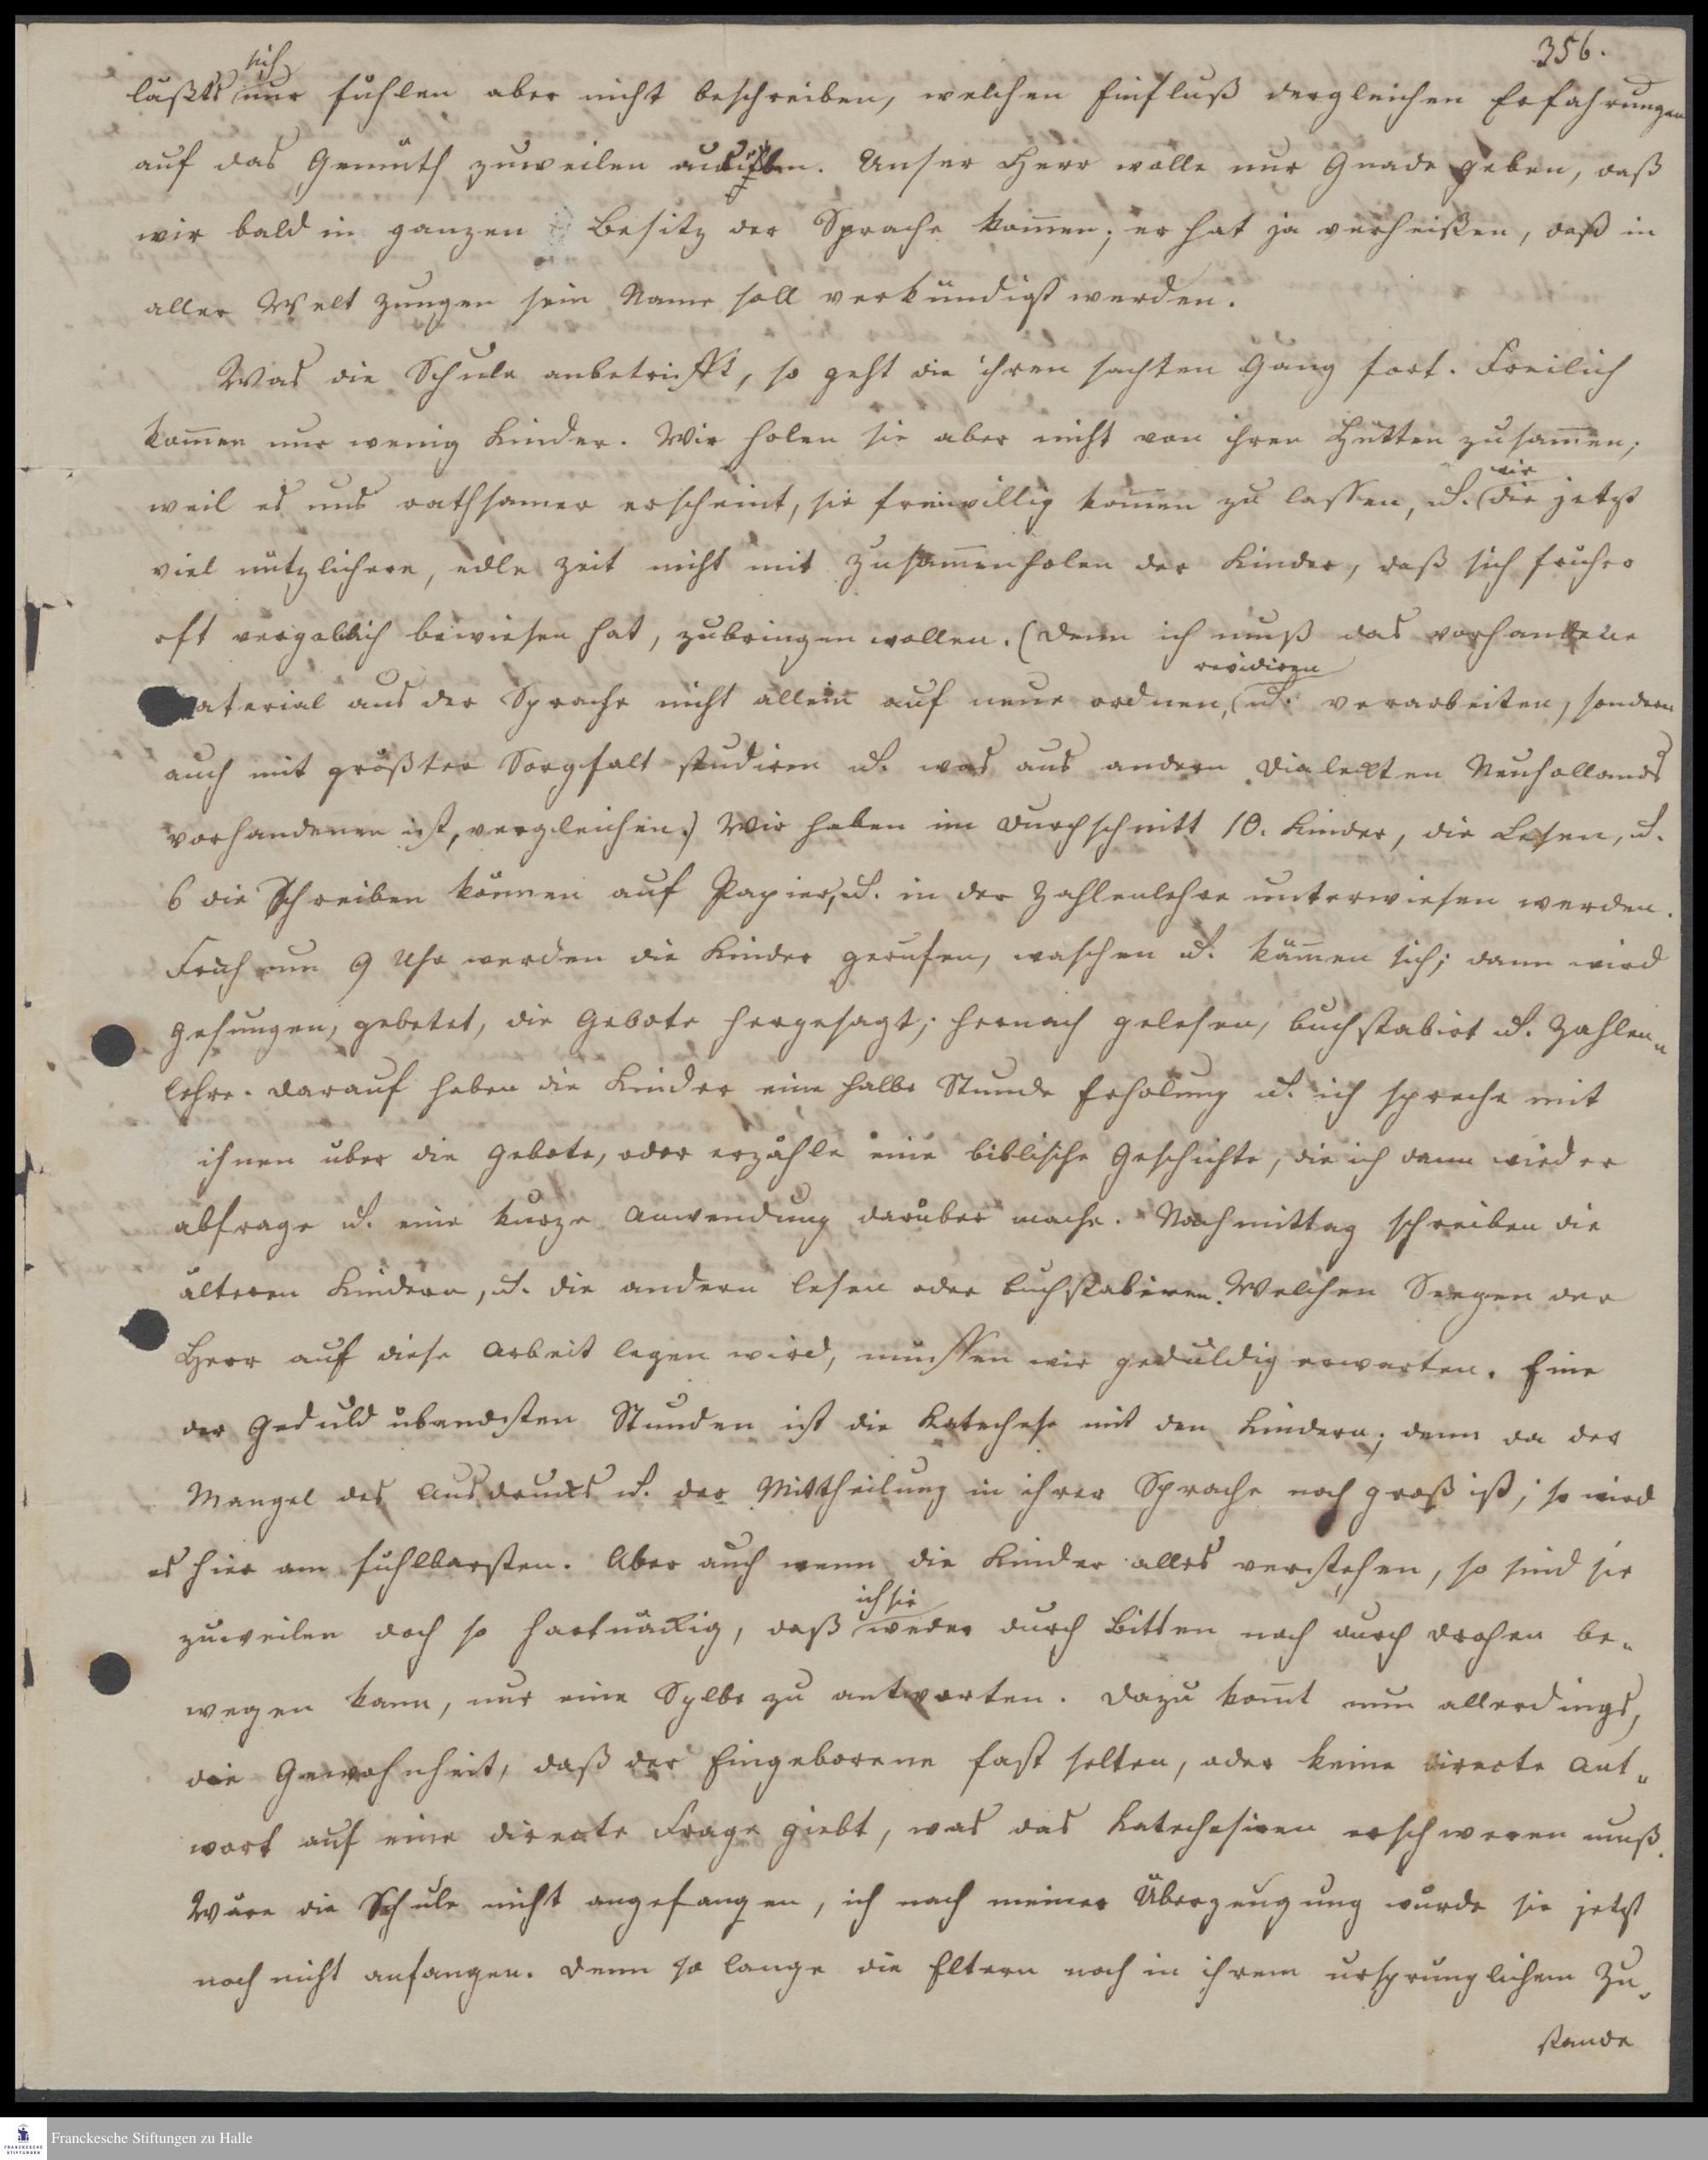 356.
läßts sich nur fühlen aber nicht beschreiben, welchen Einfluß dergleichen Erfahrungen
auf das Gemüth zuweilen ausüben. Unser Herr wolle nur Gnade geben, daß
wir bald in ganzen Besitz der Sprache kom̄en; er hat ja verheißen, daß in
aller Welt Zungen sein Name soll verkündigt werden.
Was die Schule anbetrifft, so geht die ihren sachten Gang fort. Freilich
kom̄en nur wenig Kinder. Wir holen sie aber nicht von ihren Hütten zusam̄en,
weil es uns rathsamer erscheint, sie freiwillig kom̄en zu lassen, u. wir die jetzt
viel nützlichere, edle Zeit nicht mit Zusam̄enholen der Kinder, daß sich früher
oft vergeblich bewiesen hat, zubringen wollen. (Denn ich muß das vorhandene
Material aus der Sprache nicht allein auf neue ordnen, revidiren u. verarbeiten, sondern
auch mit größter Sorgfalt studiren u. was aus andern Dialekten Neuhollands
vorhandenen ist, vergleichen.) Wir haben im Durchschnitt 10. Kinder, die Lesen, u.
6 die Schreiben können auf Papier, u. in der Zahlenlehre unterwiesen werden.
Früh um 9 Uhr werden die Kinder gerufen, waschen u. käm̄en sich; dann wird
gesungen, gebetet, die Gebote hergesagt; hernach gelesen, buchstabirt u. Zahlen„
lehre. Darauf haben die Kinder eine halbe Stunde Erholung u. ich spreche mit
ihnen über die Gebote, oder erzähle eine biblische Geschichte, die ich dann wieder
abfrage u. eine kurze Anwendung darüber mache. Nachmittag schreiben die
älteren Kindern, u. die andern lesen oder buchstabiren. Welchen Seegen der
Herr auf diese Arbeit legen wird, müssen wir geduldig erwarten. Eine
der Geduld übendsten Stunden ist die Katechese mit den Kindern; denn da der
Mangel des Ausdrucks u. der Mittheilung in ihrer Sprache noch groß ist, so wird
es hier am fühlbarsten. Aber auch wenn die Kinder alles verstehen, so sind sie
zuweilen doch so hartnäckig, daß ich sie weder durch Bitten noch durch Drohen be„
wegen kann, nur eine Sylbe zu antworten. Dazu kom̄t nun allerdings,
die Gewohnheit, daß der Eingeborene fast selten, oder keine directe Ant„
wort auf eine directe Frage giebt, was das Katechesiren erschweren muß.
Wäre die Schule nicht angefangen, ich nach meiner Überzeugung würde sie jetzt
noch nicht anfangen. Denn so lange die Eltern noch in ihrem ursprünglichem Zu„
stande
FRANCKESCHE
STIFTUNGEN
Franckesche Stiftungen zu Halle